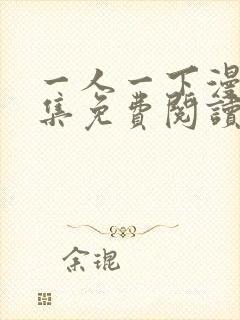 一人一下漫
集免費閱讀
余琨